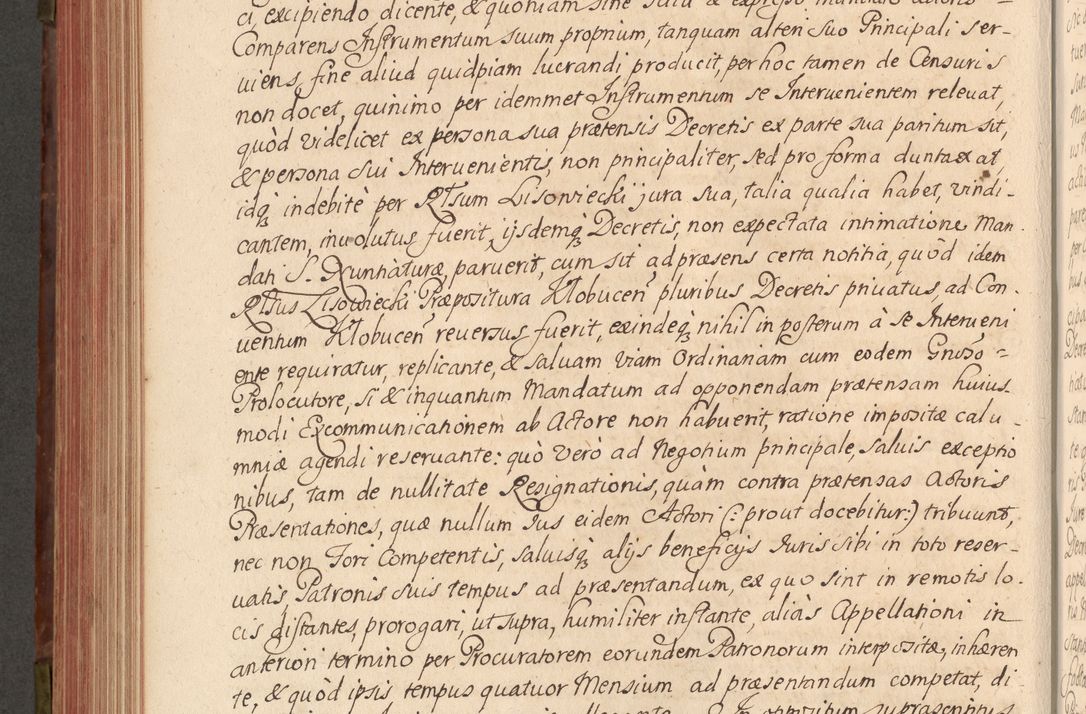 ci, excipiendo dicente, & quoniam sine
Comparens Instrumentum suum proprium, tanquam alteri suo Principali ser-
uiens, sine aliud quidpiam lucrandi producit, per hoc tamen de Censuris
non docet, quinimo per idemmet Instrumentum se Interuenientem releuat,
quòd videlicet ex persona sua prætensis Decretis ex parte sua paritum sit,
& persona sui Interuenientis, non principaliter, sed pro forma duntaxat
idq; indebitè per RLsum Lisowiecki jura sua, talia qualia habet, vindi-
cantem, inuolutus fuerit, ijsdemq; Decretis, non expectata intimatione Man-
dati S. Nuntiaturæ, paruerit, cum sit ad præsens certa notitia, quòd idem
RLsus Lisowiecki Præpositura Klobucen̄ pluribus Decretis priuatus, ad Con-
uentum Klobucen̄ reuersus fuerit, exindeq; nihil in posterum à se Interueni
ente requiratur, replicante, & saluam viam Ordinariam cum eodem Gnoso =
Prolocutore, si & inquantum Mandatum ad opponendam prætensam huius
modi Excommunicationem ab Actore non habuerit, ratione impositæ calu-
mniæ agendi reseruante: quò verò ad Negotium principale, saluis exceptio
nibus, tam de nullitate Resignationis, quàm contra prætensas Actoris
Præsentationes, quæ nullum Jus eidem Actori (: prout docebitur:) tribuunt,
nec non Fori Competentis, saluisq; alijs beneficijs Juris sibi in toto reser-
uatis, Patronis suis tempus ad præsentandum, ex quo sint in remotis lo-
cis distantes, prorogari, ut supra, humiliter instante, aliàs Appellationi in
anteriori termino per Procuratorem eorundem Patronorum interpositæ, inhæren
te, & quòd ipsis tempus quatuor Mensium ad præsentandum competat, di